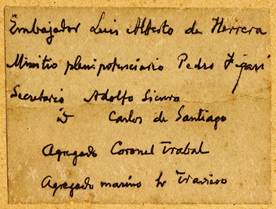 Embajador Luis Alberto de Herrera
Ministro plenipotenciario Pedro Figari
Secretario Adolfo Sicuro
Id Carlos de Santiago
Agregado Coronel Trabal
Agregado marino Sr Travieso